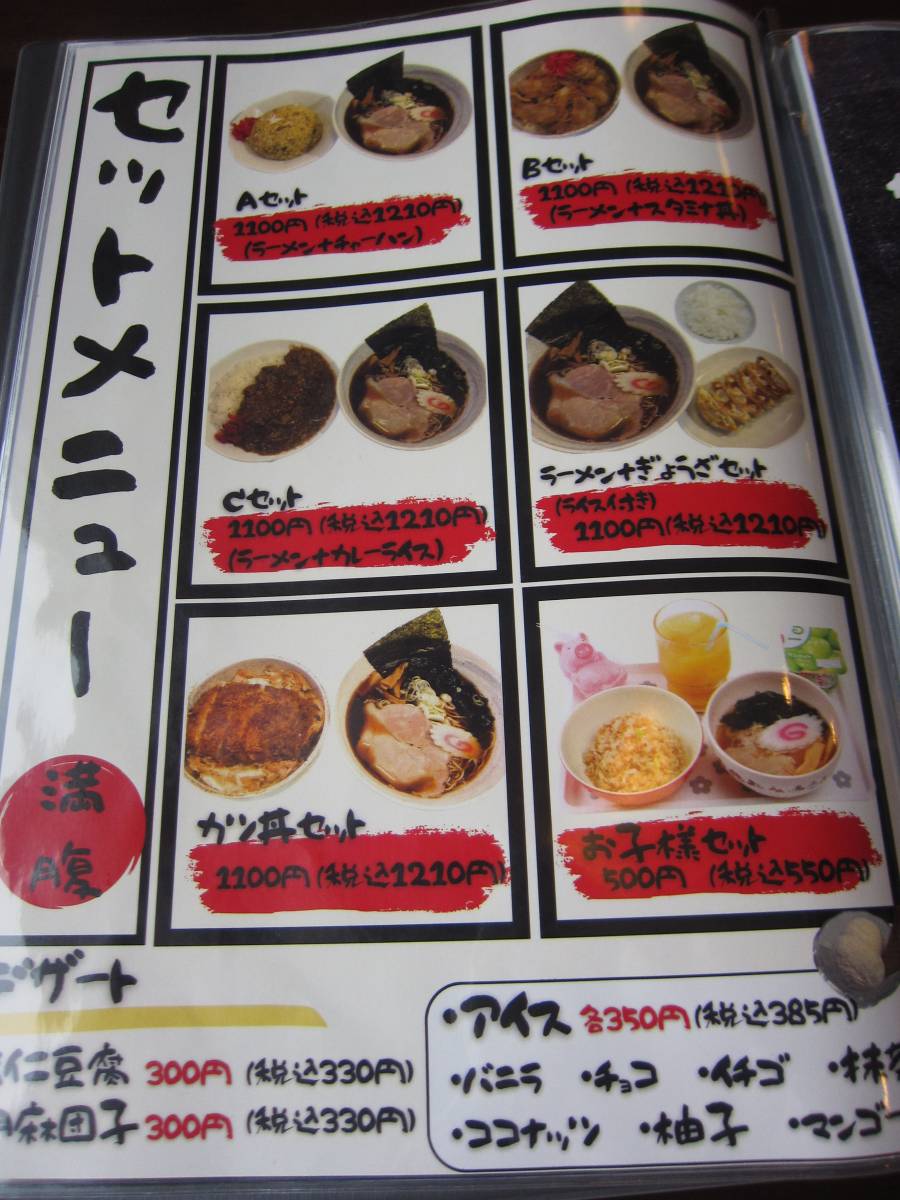 セットメニュー
満腹
Aセット
1100円(税込1210円)
(ラーメン+チャーハン)
Bセット
1100円(税込1210円)
(ラーメン+スタミナ丼)
Cセット
1100円(税込1210円)
(ラーメン+カレーライス)
ラーメン+ぎょうざセット
(ライス付き)
1100円(税込1210円)
カツ丼セット
1100円(税込1210円)
お子様セット
500円 (税込550円)
デザート
仁豆腐 300円 (税込330円)
麻団子 300円 (税込330円)
・アイス 各350円(税込385円)
・バニラ ・チョコ ・イチゴ ・抹茶
・ココナッツ ・柚子 ・マンゴー